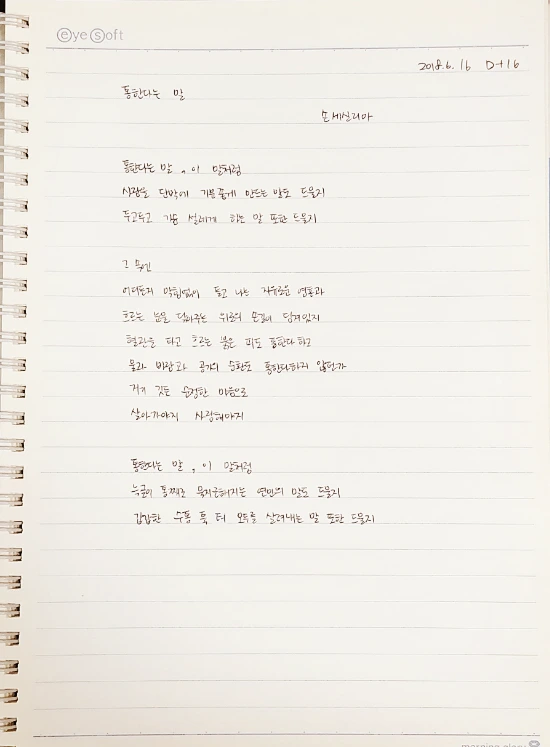 eyesoft
2018.6.16 D+16
통한다는 말
손세실리아
통한다는 말, 이 말처럼
사람을 단박에 기분 좋게 만드는 말도 드물지
두고두고 가슴 설레게 하는 말 또한 드물지
그 속엔
어디든지 막힘없이 들고 나는 자유로운 영혼과
흐르는 눈물 닦아주는 위로의 손길이 담겨있지
혈관을 타고 흐르는 붉은 피도 통한다 하고
물과 바람과 공기의 순환도 통한다하지 않던가
거기 깃든 순정한 마음으로
살아가야지 사랑해야지
통한다는 말, 이 말처럼
누군가 통째로 뭉클해지는 연민의 말도 드물지
갑갑한 숨통 툭 터 모두를 살려내는 말 또한 드물지
morning glory